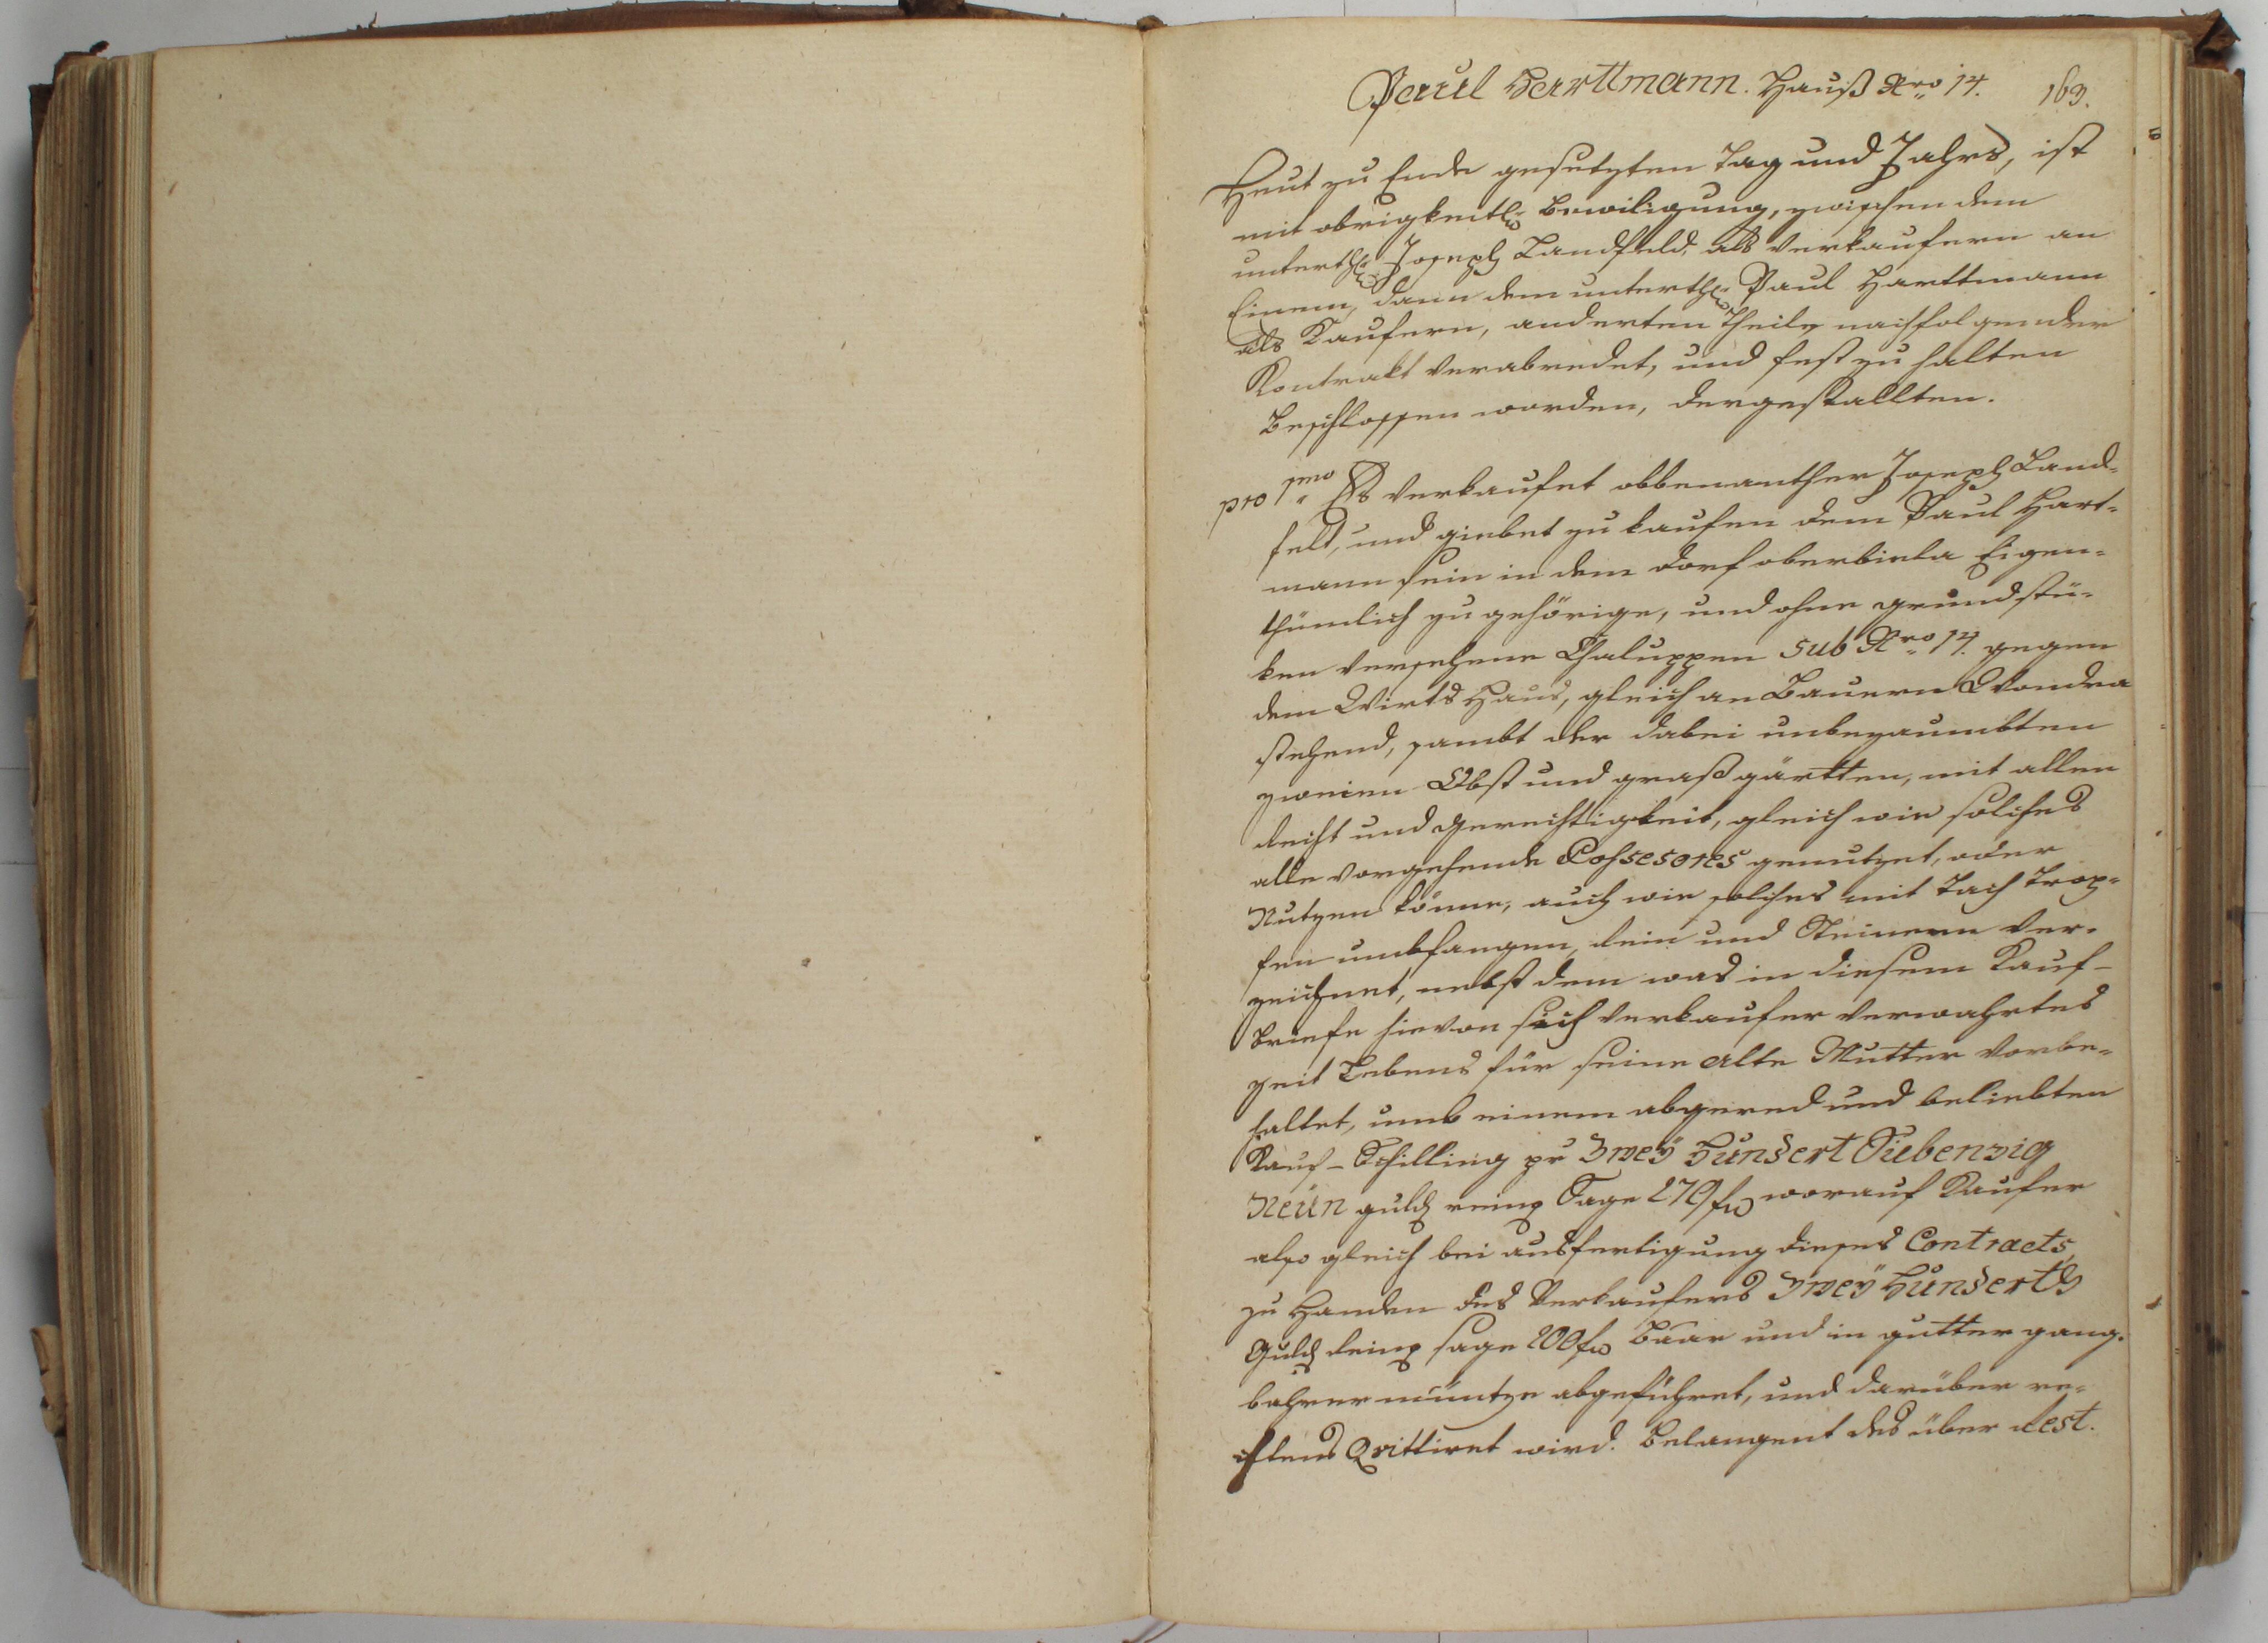 Paul Harttmann. Hauß Nro 14. 163.
Heut zu Ende gesetzten Tag und Jahrs, ist
mit obrigkeitl. Bewiligung, zwischen dem
unterth. Joseph Landfeld, als verkaufern an
Einem, dann dem unterth. Paul Harttmann
als Kaufern, anderten Theils nachfolgender
Kontrakt verabredet, und fest zu halten
Beschlossen worden, dergestallten.
pro 1mo Es verkaufet obbenanther Joseph Land-
felt, und giebet zu kaufen dem Paul Hart-
mann sein in dem dorf oberbiela Eigen-
thümlich zu gehörige, und ohne grundstü-
ken versehene Chaluppen sub Nro 14. gegen
dem Wirts Haus, gleich an Bauern Wondra
stehend, sambt der dabei unbezaumbten
zweien Obst und graß gärtten, mit allen
Recht und Gerechtigkeit, gleich wie solches
alle vorgehende Possesores genutzet, oder
Nutzen könne, auch wie solches mit Tach Trop-
fen umbfangen, Rein und Steinern ver-
zeichnet, nebst dem was in diesem Kauf-
Briefe hievon sich verkaufer verwahrtes
zeit Lebens für seine alte Mutter vorbe-
haltet, umb einem abgered und beliebten
Kauf-Schilling pr Zweÿ Hundert Siebenzig
Neün guld reinp Sage 279 f worauf Kaufer
also gleich bei ausfertigung dieses Contracts,
zu Handen des Verkaufers Zweÿ Hundert
Guld Reinp sage 200 f Baar und in gutter gang-
bahrer müntze abgeführet, und darüber re-
chtens Qvittiret wird. Belangent des über Rest.